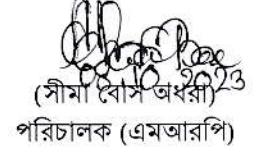 (সীমা বোস অথরা)
পরিচালক (এমআরপি)